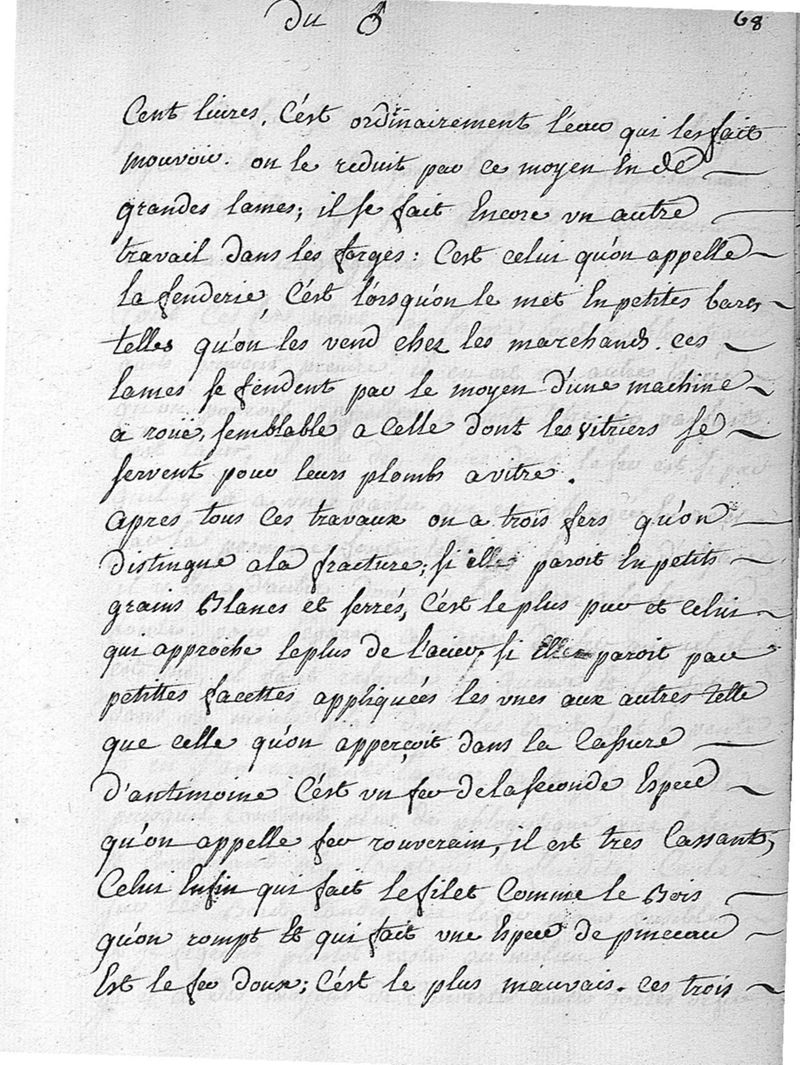 du ♂ 68
Cent livres, C'est ordinairement l'eau qui les fait
mouvoir. on le reduit par ce moyen En de
grandes lames; il se fait Encore un autre
travail dans les forges: C'est celui qu'on appelle
la fenderie, C'est lorsqu'on le met En petites bares
telles qu'on les vend chez les marchands. ces
lames se fendent par le moyen d'une machine
a roüe, semblable a Celle dont les vitriers se
servent pour leurs plombs a vitre.
apres tous Ces travaux on a trois fers qu'on
distingue a la fracture; si elle paroit En petits
grains Blancs et serrés, C'est le plus pur et Celui
qui approche le plus de l'acier, si Elle paroit par
petites facettes appliquées les unes aux autres telle
que celle qu'on apperçoit dans la Cassure
d'antimoine C'est un fer de la seconde Espece
qu'on appelle fer rouverain, il est tres Cassant,
Celui Enfin qui fait le filet Comme le Bois
qu'on rompt Et qui fait une Espece de pinceau
Est le fer doux; C'est le plus mauvais. Ces trois